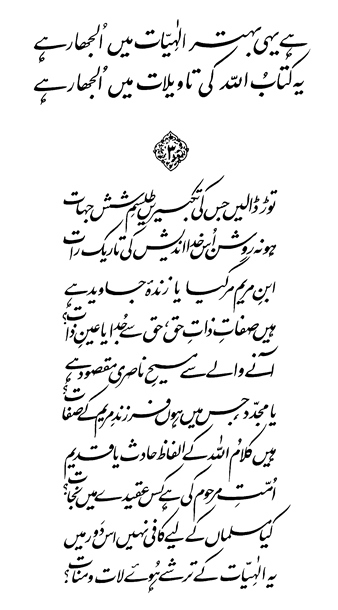 ہے یہی بہتر الٰہیات میں اُلجھا رہے
یہ کتابُ اللہ کی تاویلات میں اُلجھا رہے
۳
توڑ ڈالیں جس کی تکبیریں طلسمِ شش جہات
ہو نہ روشن اُس خدا اندیش کی تاریک رات
ابنِ مریم مر گیا یا زندۂ جاوید ہے
ہیں صفاتِ ذاتِ حق، حق سے جُدا یا عینِ ذات؟
آنے والے سے مسیحِ ناصری مقصود ہے
یا مجدّد، جس میں ہوں فرزندِ مریم کے صفات؟
ہیں کلامُ اللہ کے الفاظ حادث یا قدیم
اُمّتِ مرحوم کی ہے کس عقیدے میں نجات؟
کیا مسلماں کے لیے کافی نہیں اس دَور میں
یہ الٰہیّات کے ترشے ہُوئے لات و منات؟